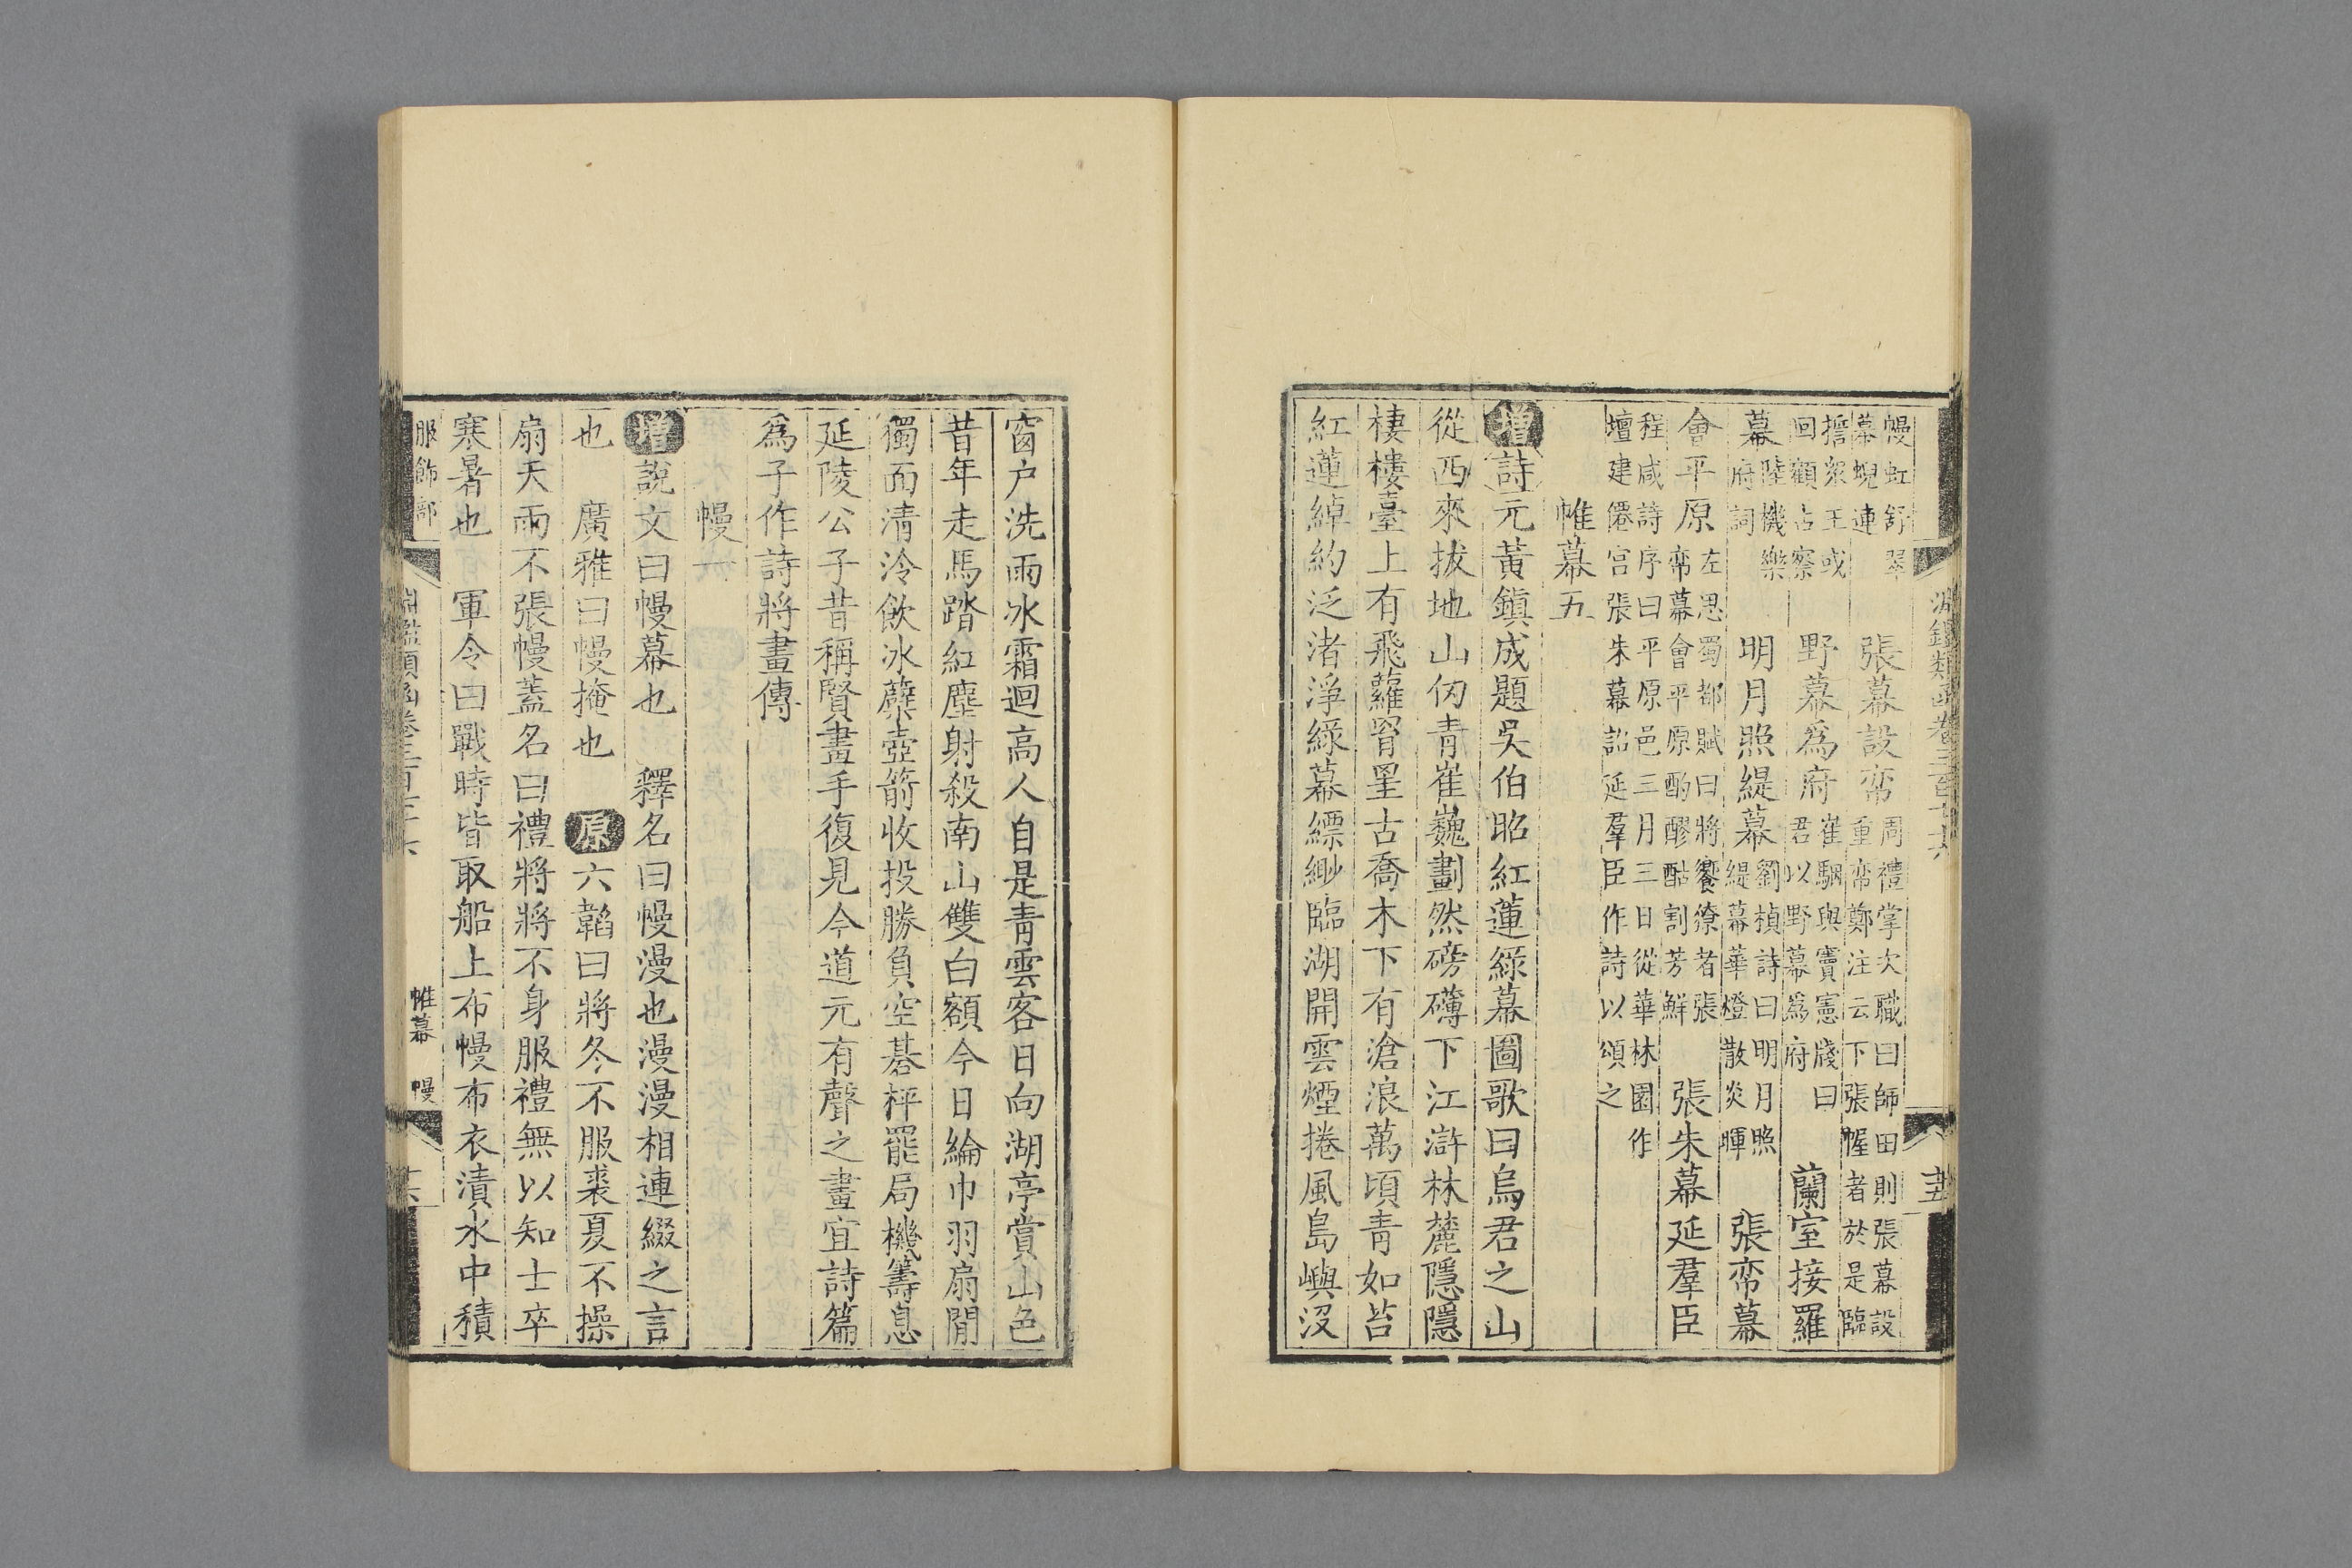 淵鑑類函卷三百七十六
幔虹舒翠
幕蜺連
張幕設帟
周禮掌次職曰師田則張幕設
重帟鄭注云下張幄者於是臨
擔眾王或
回顧占察
野幕爲府
崔駰與竇憲牋曰
君以野幕爲府
蘭室接羅
幕
陸機樂
府詞
明月照緹幕
劉楨詩曰明月照
緹幕華燈散炎暉
張帟幕
會平原
左思蜀都賦曰將饗獠者張
帟幕會平原酌醪酤割芳鮮
張朱幕延羣臣
程咸詩序曰平原邑三月三日從華林園作
壇建僊宫張朱幕詔延羣臣作詩以頌之
帷幕五
增詩元黃鎮成題吳伯昭紅蓮綠幕圖歌曰烏君之山
從西來拔地山仞青崔巍劃然磅礴下江滸林麓隱隱
棲樓臺上有飛蘿罥罣古喬木下有滄浪萬頃青如苔
紅蓮綽約泛渚淨綠幕縹緲臨湖開雲煙捲風島嶼沒
窗户洗雨冰霜迴高人自是青雲客日向湖亭賞山色
昔年走馬踏紅塵射殺南山雙白額今日綸巾羽扇閒
獨面清泠飲冰蘗壺箭收投勝負空棊枰罷局機籌息
延陵公子昔稱賢畫手復見今道元有聲之畫宜詩篇
爲子作詩將畫傳
幔
增說文曰幔幕也　釋名曰幔漫也漫漫相連綴之言
也　廣雅曰幔掩也　原六韜曰將冬不服裘夏不操
扇天雨不張幔蓋名曰禮將將不身服禮無以知士卒
寒暑也　軍令曰戰時皆取船上布幔布衣漬水中積
服飾部
淵鑑類函卷三百七十六
帷幕　幔